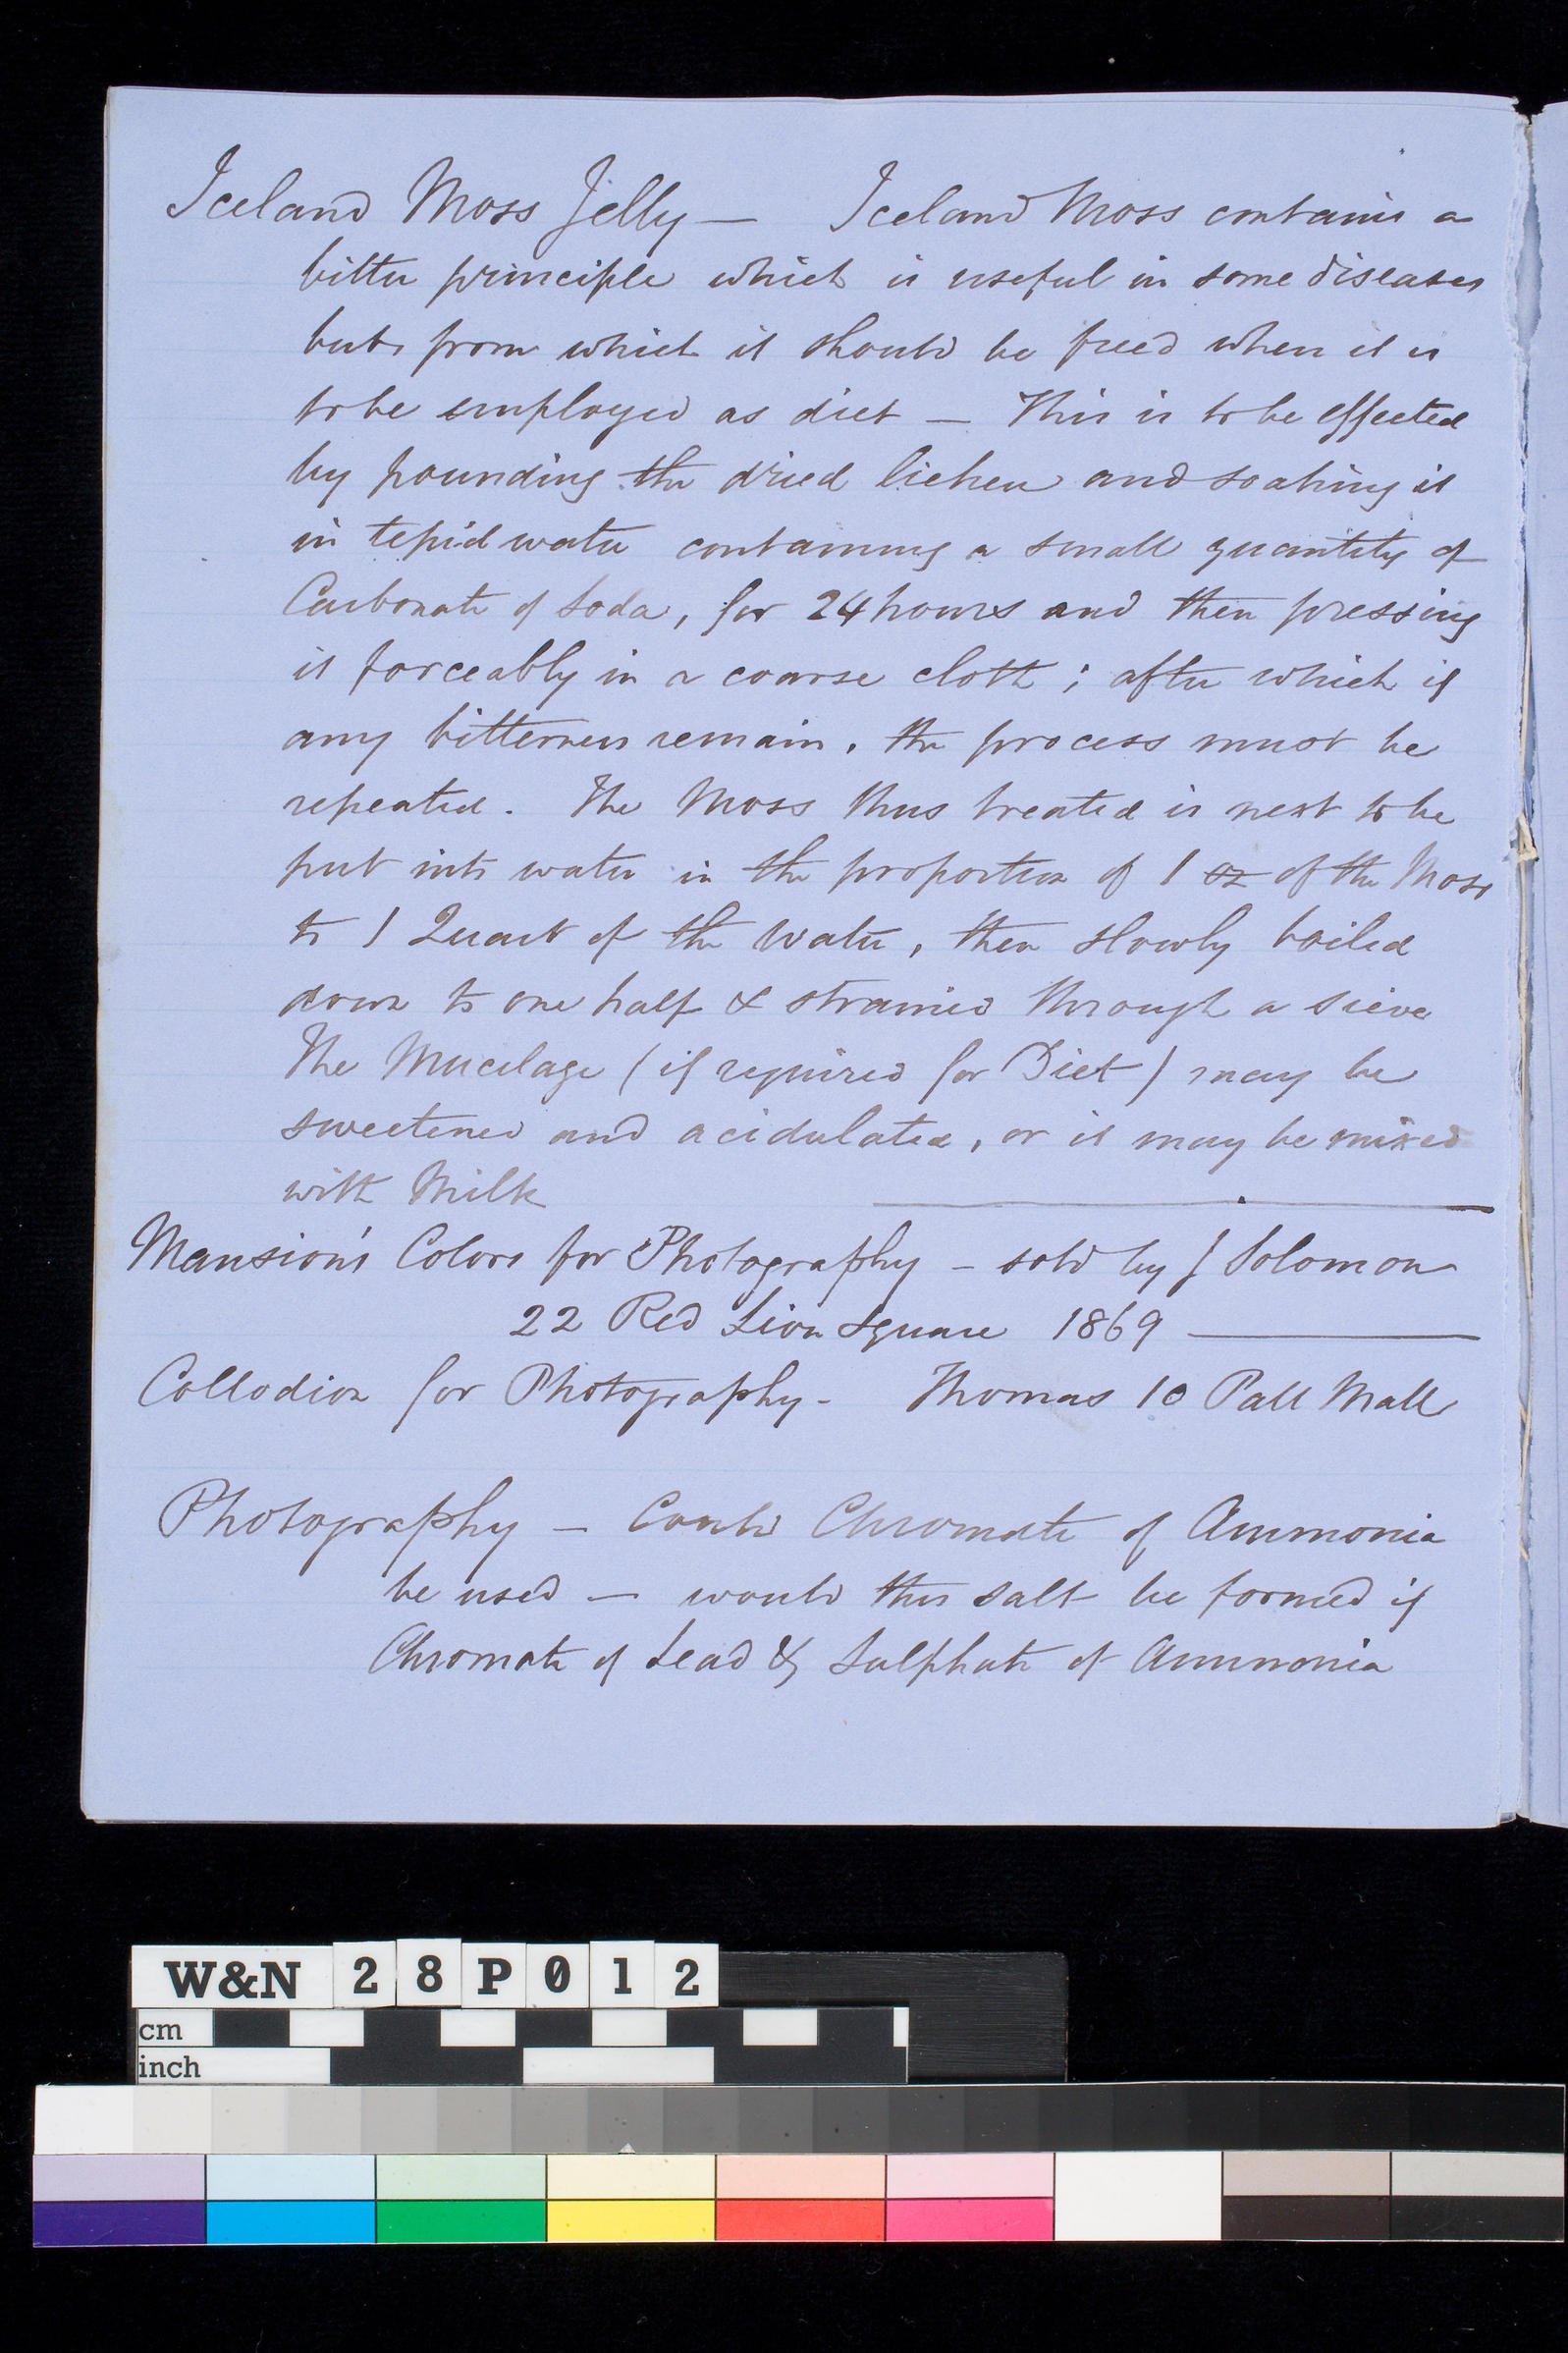 Iceland Moss Jelly — Iceland Moss contains a
bitter principle which is useful in some diseases
but from which it should be freed when it is
to be employed as diet — This is to be effected
by pounding the dried lichen and soaking it
in tepid water containing a small quantity of
Carbonate of Soda, for 24 hours and then pressing
it forceably in a coarse cloth ; after which if
any bitterness remain, the process must be
repeated. The Moss thus treated is next to be
put into water in the proportion of 1 oz of the Moss
to 1 Quart of the Water, then slowly boiled
down to one half & strained through a sieve
The Mucilage (if required for Diet) may be
sweetened and acidulated, or it may be mixed
with Milk
Mansion's Colors for Photography – sold by J Solomon
22 Red Lion Square 1869
Collodion for Photography – Thomas 10 Pall Mall
Photography — Could Chromate of Ammonia
be used — would this salt be formed if
Chromate of Lead & Sulphate of Ammonia
W&N 28P012
cm
inch